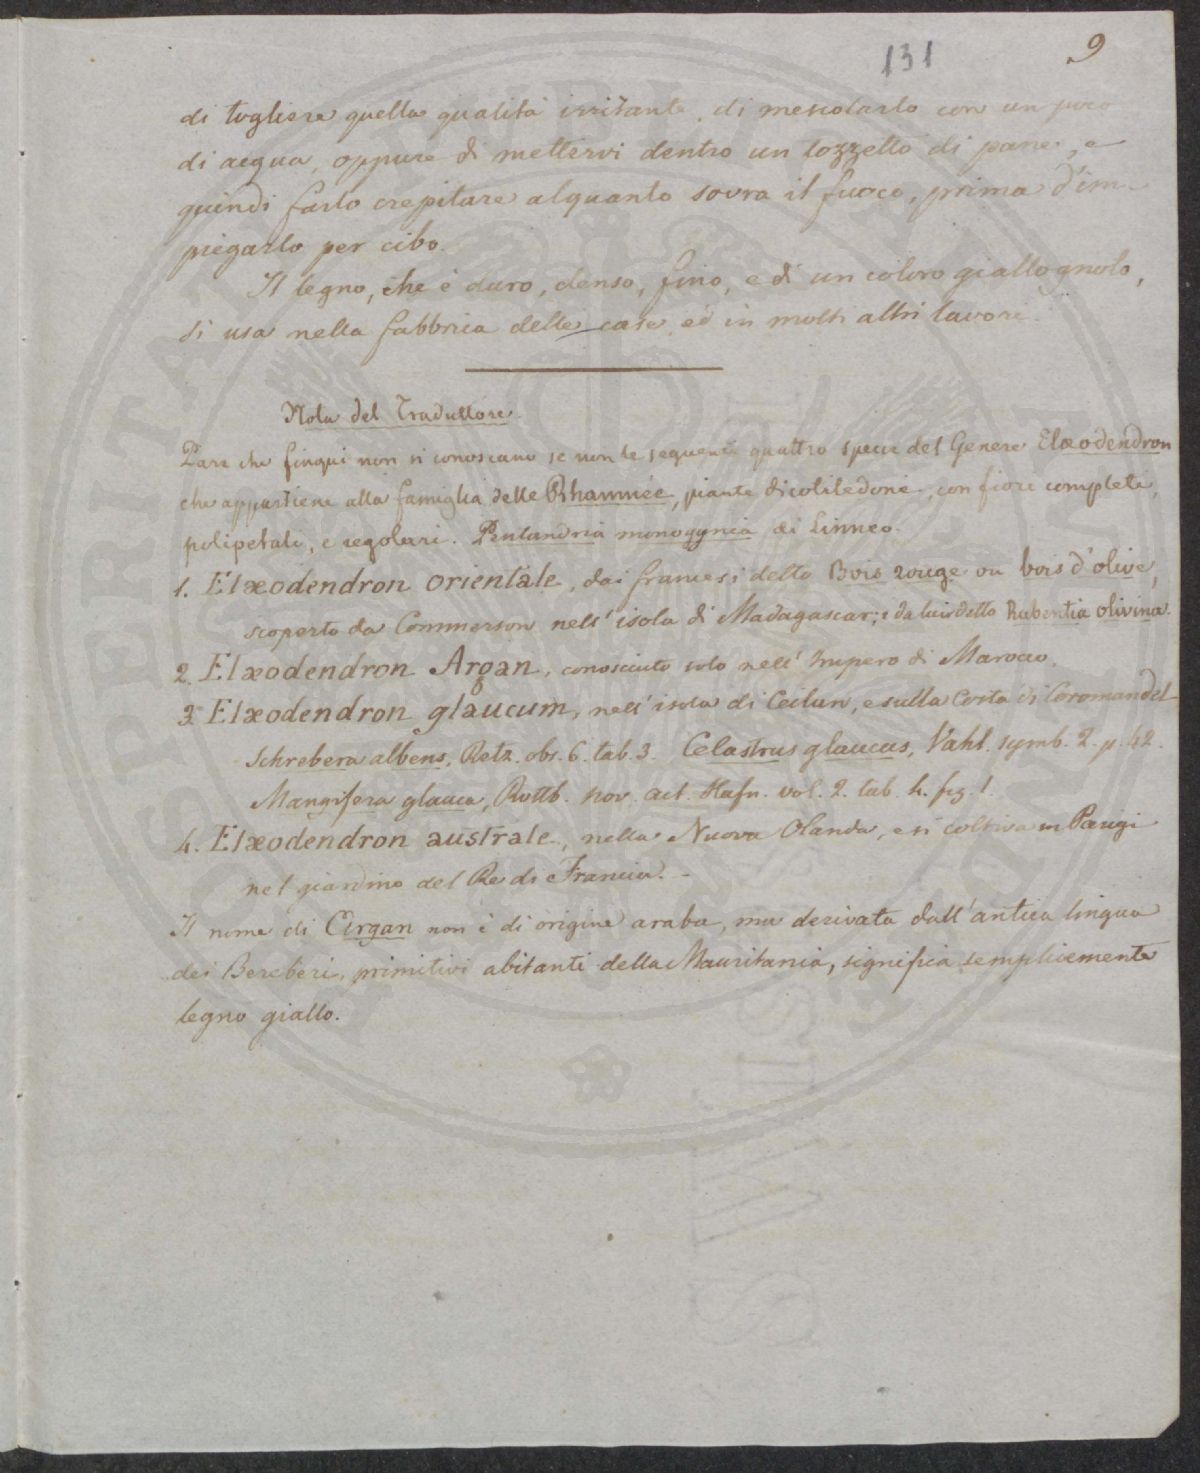 131 9
di togliere quella qualità irritante, di mescolarlo con un poco
di acqua, oppure di mettervi dentro un tozzetto di pane, e
quindi farlo crepitare alquanto sovra il fuoco, prima d'im-
piegarlo per cibo.
Il legno, che è duro, denso, fino, e di un coloro giallognolo,
si usa nella fabbrica delle case, ed in molti altri lavori.
Nota del Traduttore.
Pare che finqui non si conoscano se non le seguenti quattro specie del Genere Elæodendron
che appartiene alla famiglia delle Rhamnée, piante dicotiledoni, con fiori completi,
polipetali, e regolari. Pentandria monogynia di Linneo.
1. Elæodendron orientale, dai francesi detto Bois rouge ou bois d'olive,
scoperto da Commerson nell'isola di Madagascar; e da lui detto Rubentia olivina.
2. Elæodendron Argan, conosciuto solo nell'Impero di Marocco.
3. Elæodendron glaucum, nell'isola di Ceilan, e sulla Costa di Coromandel-
Schrebera albens, Retz. obs. 6. tab. 3. Celastrus glaucus, Vahl. symb. 2. p. 42.
Mangifera glauca, Rottb. nov. act. Hafn. vol. 2. tab. 4. fig. 1.
4. Elæodendron australe, nella Nuova Olanda, e si coltiva in Parigi
nel giardino del Re di Francia. -
Il nome di Argan non è di origine araba, ma derivata dall'antica lingua
dei Bereberi, primitivi abitanti della Mauritania, significa semplicemente
legno giallo.